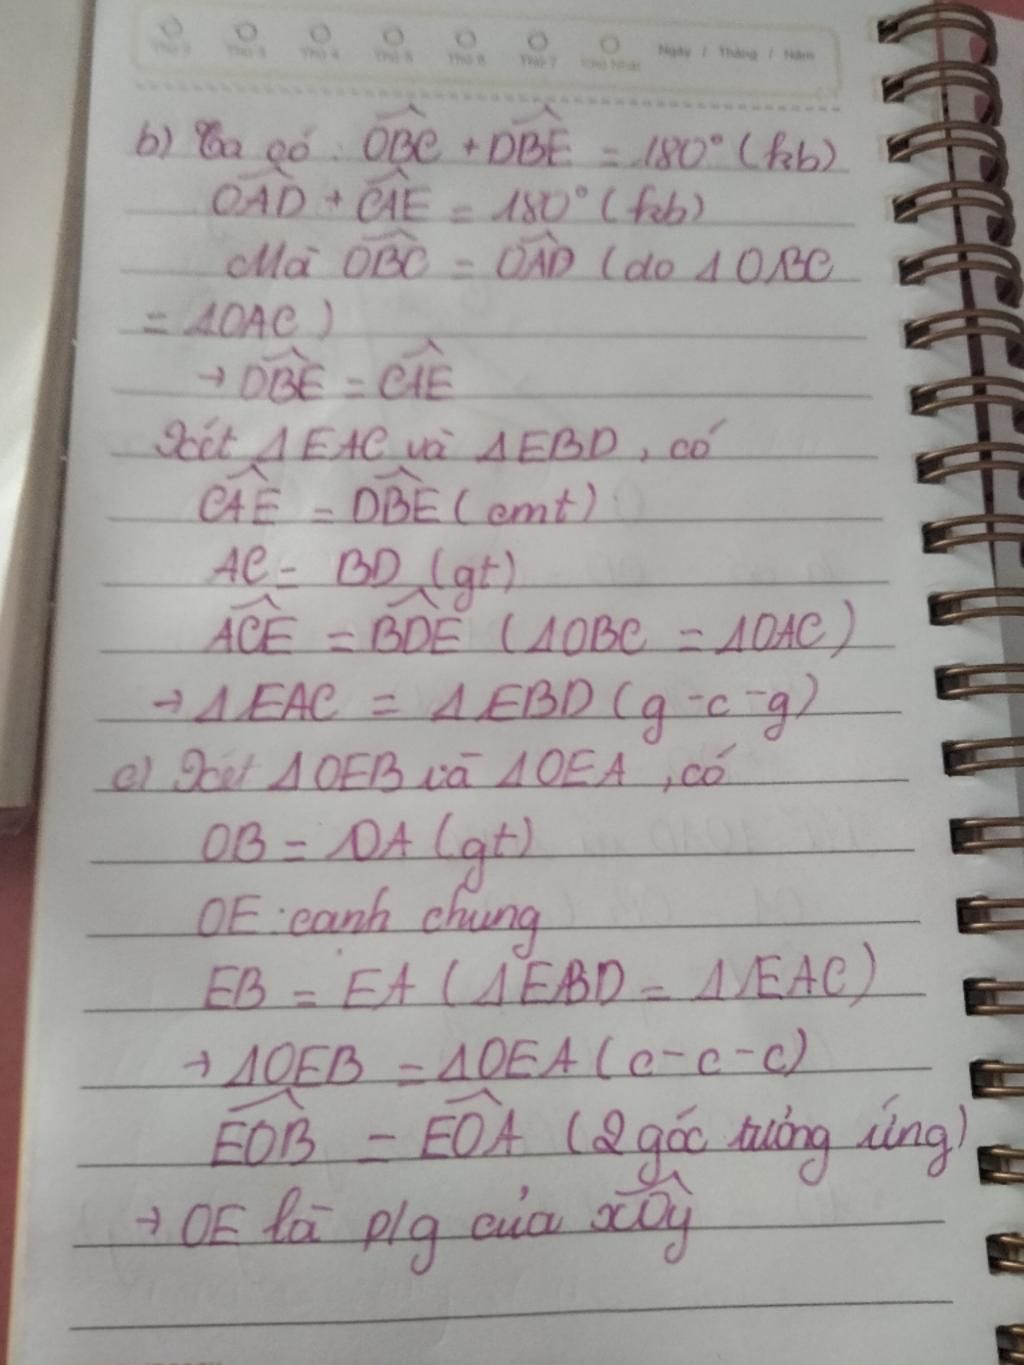 Thứ 2 Thứ 3 Thứ 4 Thứ 5 Thứ 6 Thứ 7 Chủ Nhật Ngày / Tháng / Năm
b) Ta có : OBC + DBE = 180° (kb)
OAD + CAE = 180° (kb)
Mà OBC = OAD (do ΔOBC
= ΔOAC)
→ DBE = CAE
Xét ΔEAC và ΔEBD, có
CAE = DBE (cmt)
AC = BD (gt)
ACE = BDE (ΔOBC = ΔOAC)
→ ΔEAC = ΔEBD (g-c-g)
c) Xét ΔOEB và ΔOEA, có
OB = OA (gt)
OE : cạnh chung
EB = EA (ΔEBD = ΔEAC)
→ ΔOEB = ΔOEA (c-c-c)
EOB = EOA (2 góc tương ứng)
→ OE là p/g của xOy